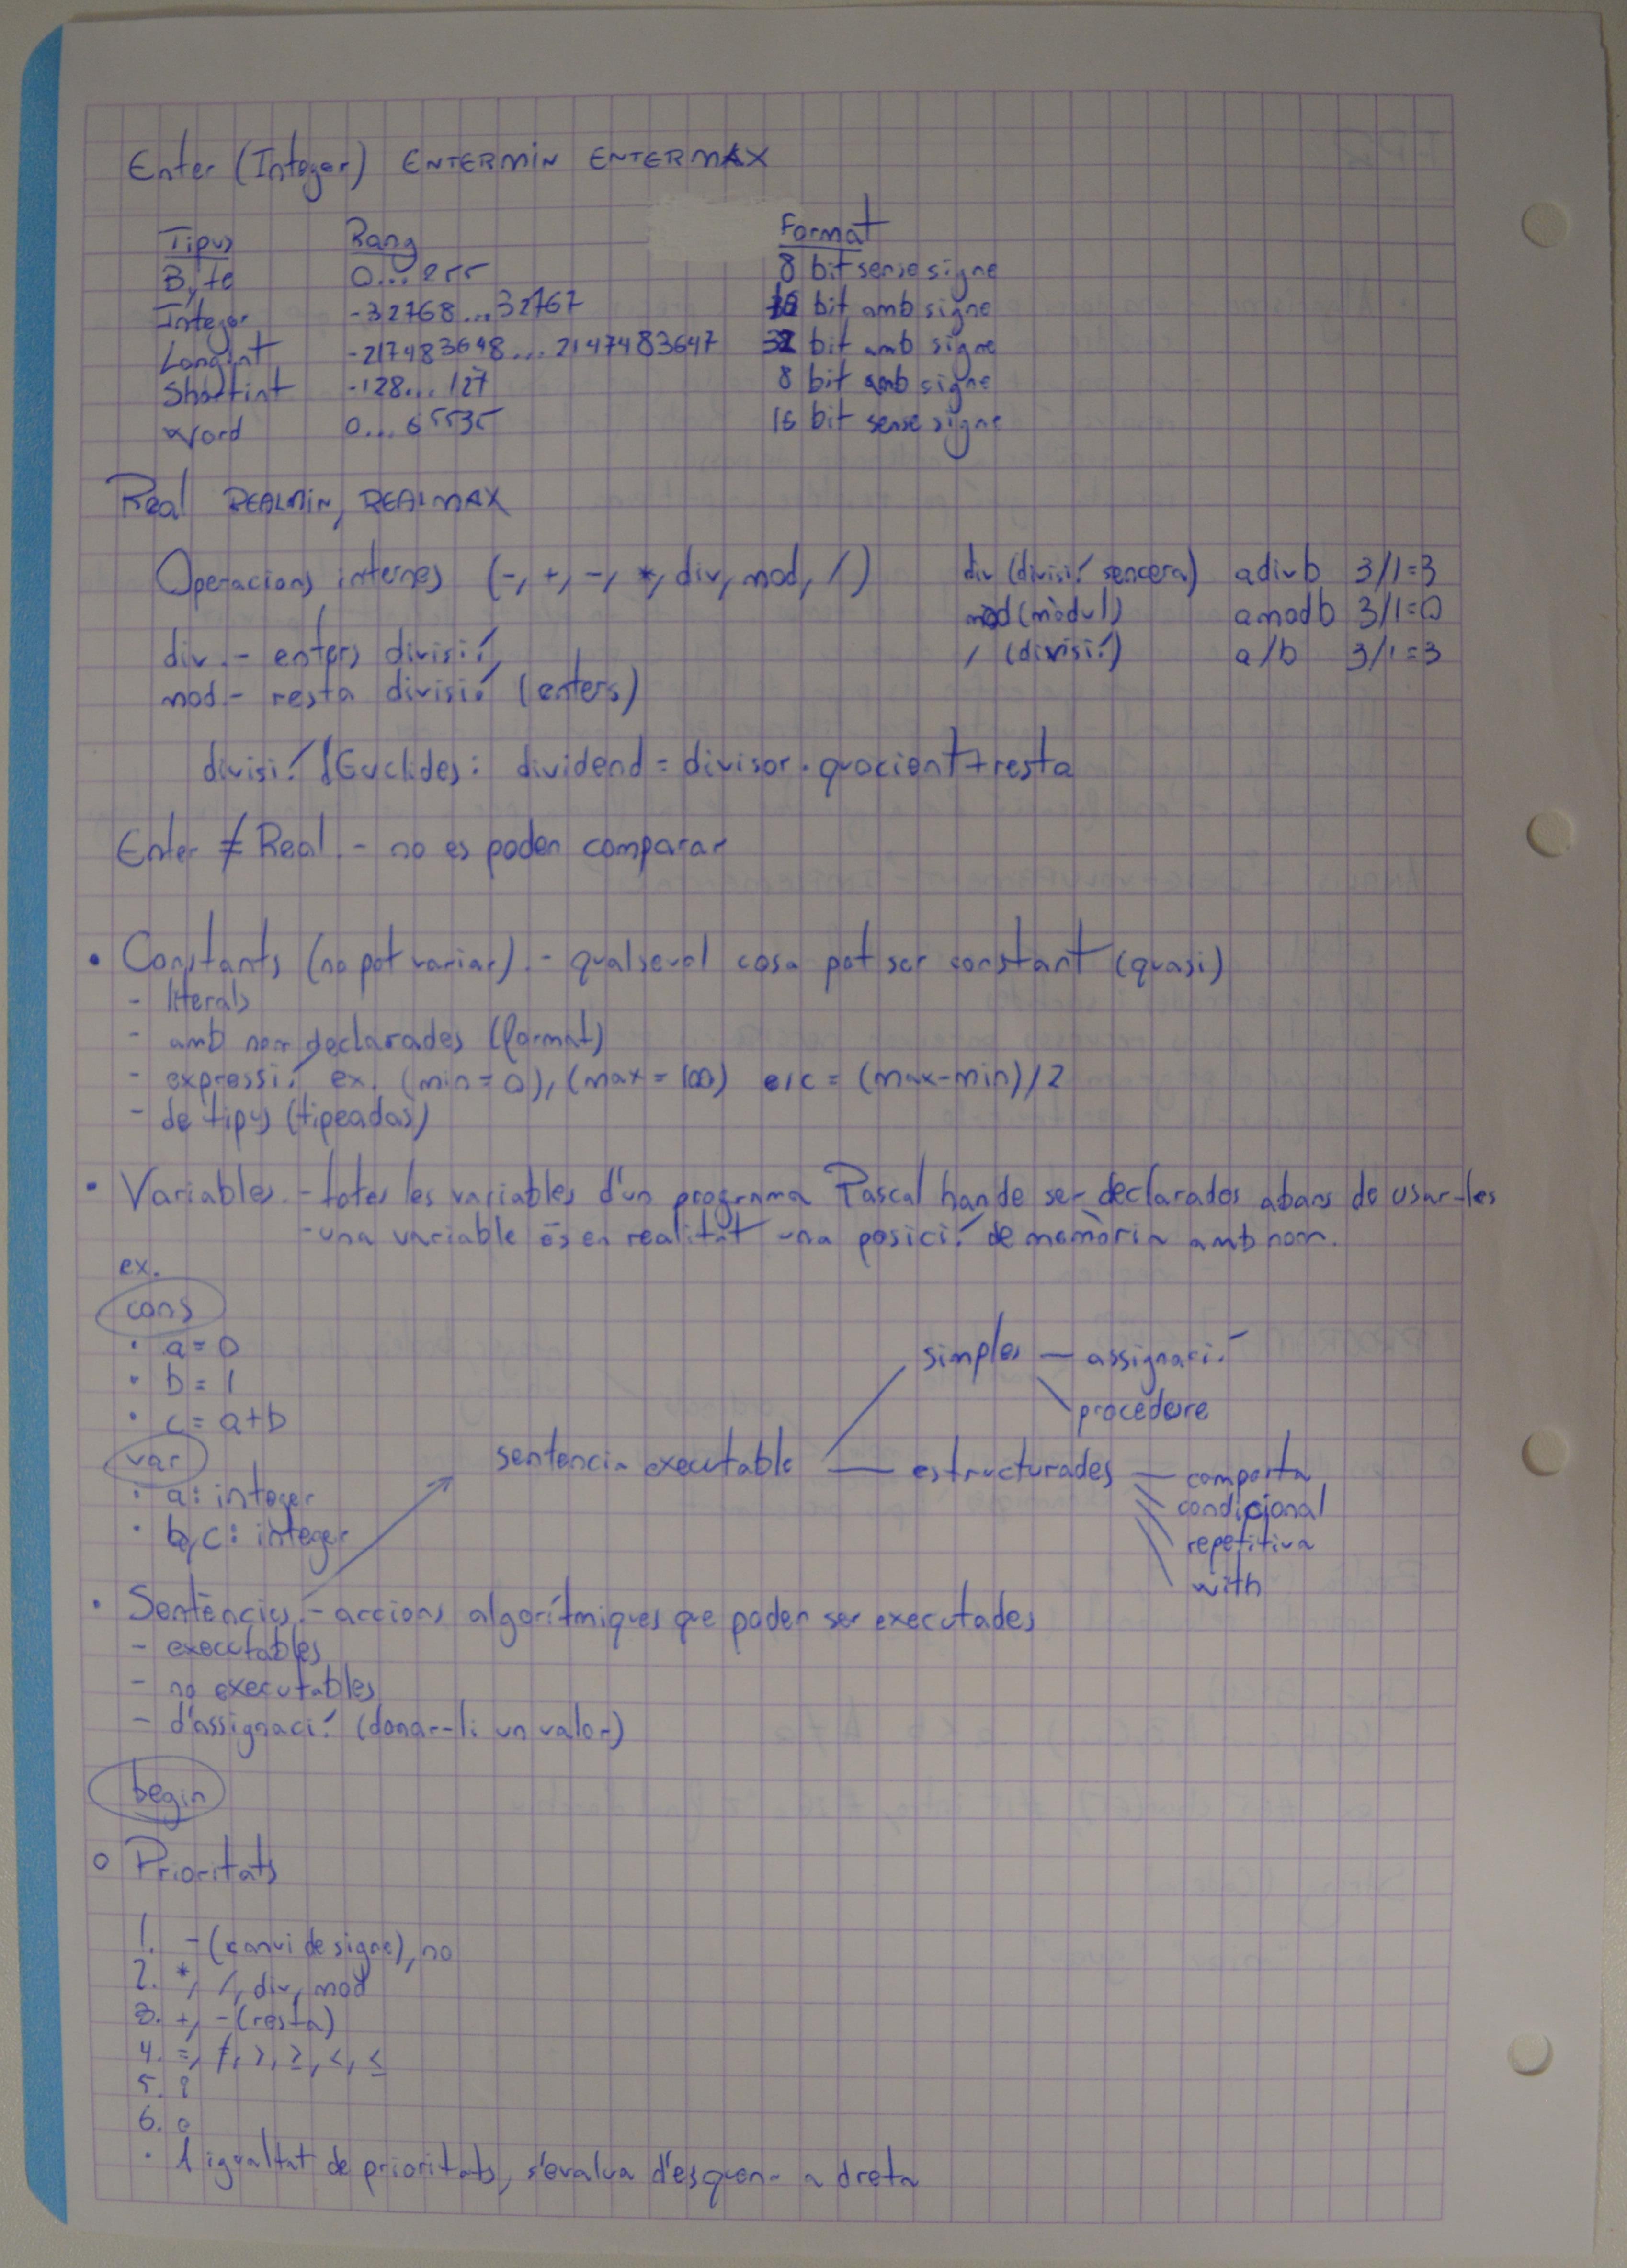 Enter (Integer) ENTERMIN ENTERMAX
Tipus Rang Format
Byte 0...255 8 bit sense signe
Integer -32768...32767 16 bit amb signe
Longint -217483648...2147483647 32 bit amb signe
Shortint -128...127 8 bit amb signe
Word 0...65535 16 bit sense signe
Real REALMIN, REALMAX
Operacions internes (-, +, -, *, div, mod, /) div (divisió sencera) a div b 3/1=3
mod (mòdul) a mod b 3/1=0
div.- enters divisió / (divisió) a/b 3/1=3
mod.- resta divisió (enters)
divisió d'Euclides: dividend = divisor · quocient + resta
Enter ≠ Real.- no es poden comparar
• Constants (no pot variar).- qualsevol cosa pot ser constant (quasi)
- literals
- amb nom declarades (format)
- expressió ex. (min=0), (max=100) c = (max-min)/2
- de tipus (tipeadas)
• Variables.- totes les variables d'un programa Pascal han de ser declarades abans de usar-les
- una variable és en realitat una posició de memòria amb nom.
ex.
cons
• a=0
• b=1
• c=a+b
var
• a: integer
• b,c: integer
sentencia executable
simples — assignació
procedere
estructurades — composta
condicional
repetitiva
with
• Sentències.- accions algorítmiques que poden ser executades
- executables
- no executables
- d'assignació (donar-li un valor)
begin
o Prioritats
1. -(canvi de signe), no
2. *, /, div, mod
3. +, -(resta)
4. =, ≠, >, ≥, <, ≤
5. i
6. o
• A igualtat de prioritats, s'evalua d'esquerra a dreta